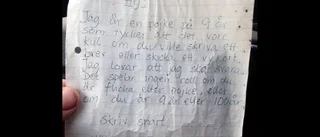 Hej!
Jag är en pojke på 9 år
som tycker att det vore
kul om du ville skriva ett
brev eller skicka ett vykort.
Jag lovar att jag ska svara.
Det spelar ingen roll om du
är flicka eller pojke, eller
om du är 9 år eller 100 år.
Skriv snart